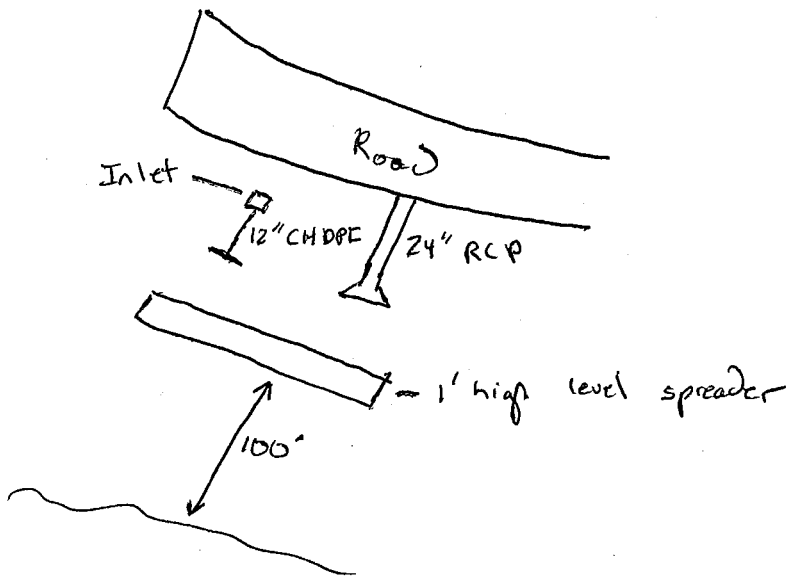 Road
Inlet
12" CHDPE
24" RCP
1' high level spreader
100'